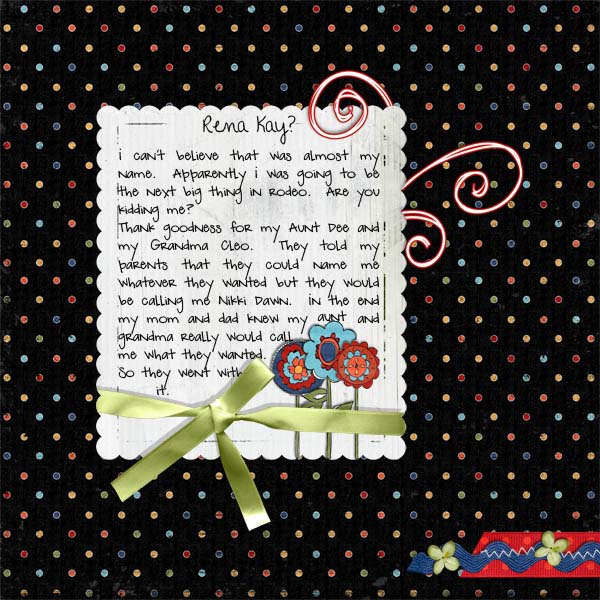 Rena Kay?
i can't believe that was almost my
name. Apparently i was going to be
the next big thing in rodeo. Are you
kidding me?
Thank goodness for my Aunt Dee and
my Grandma Cleo. They told my
parents that they could name me
whatever they wanted but they would
be calling me Nikki Dawn. in the end
my mom and dad knew my aunt and
grandma really would call
me what they wanted.
So they went with
it.